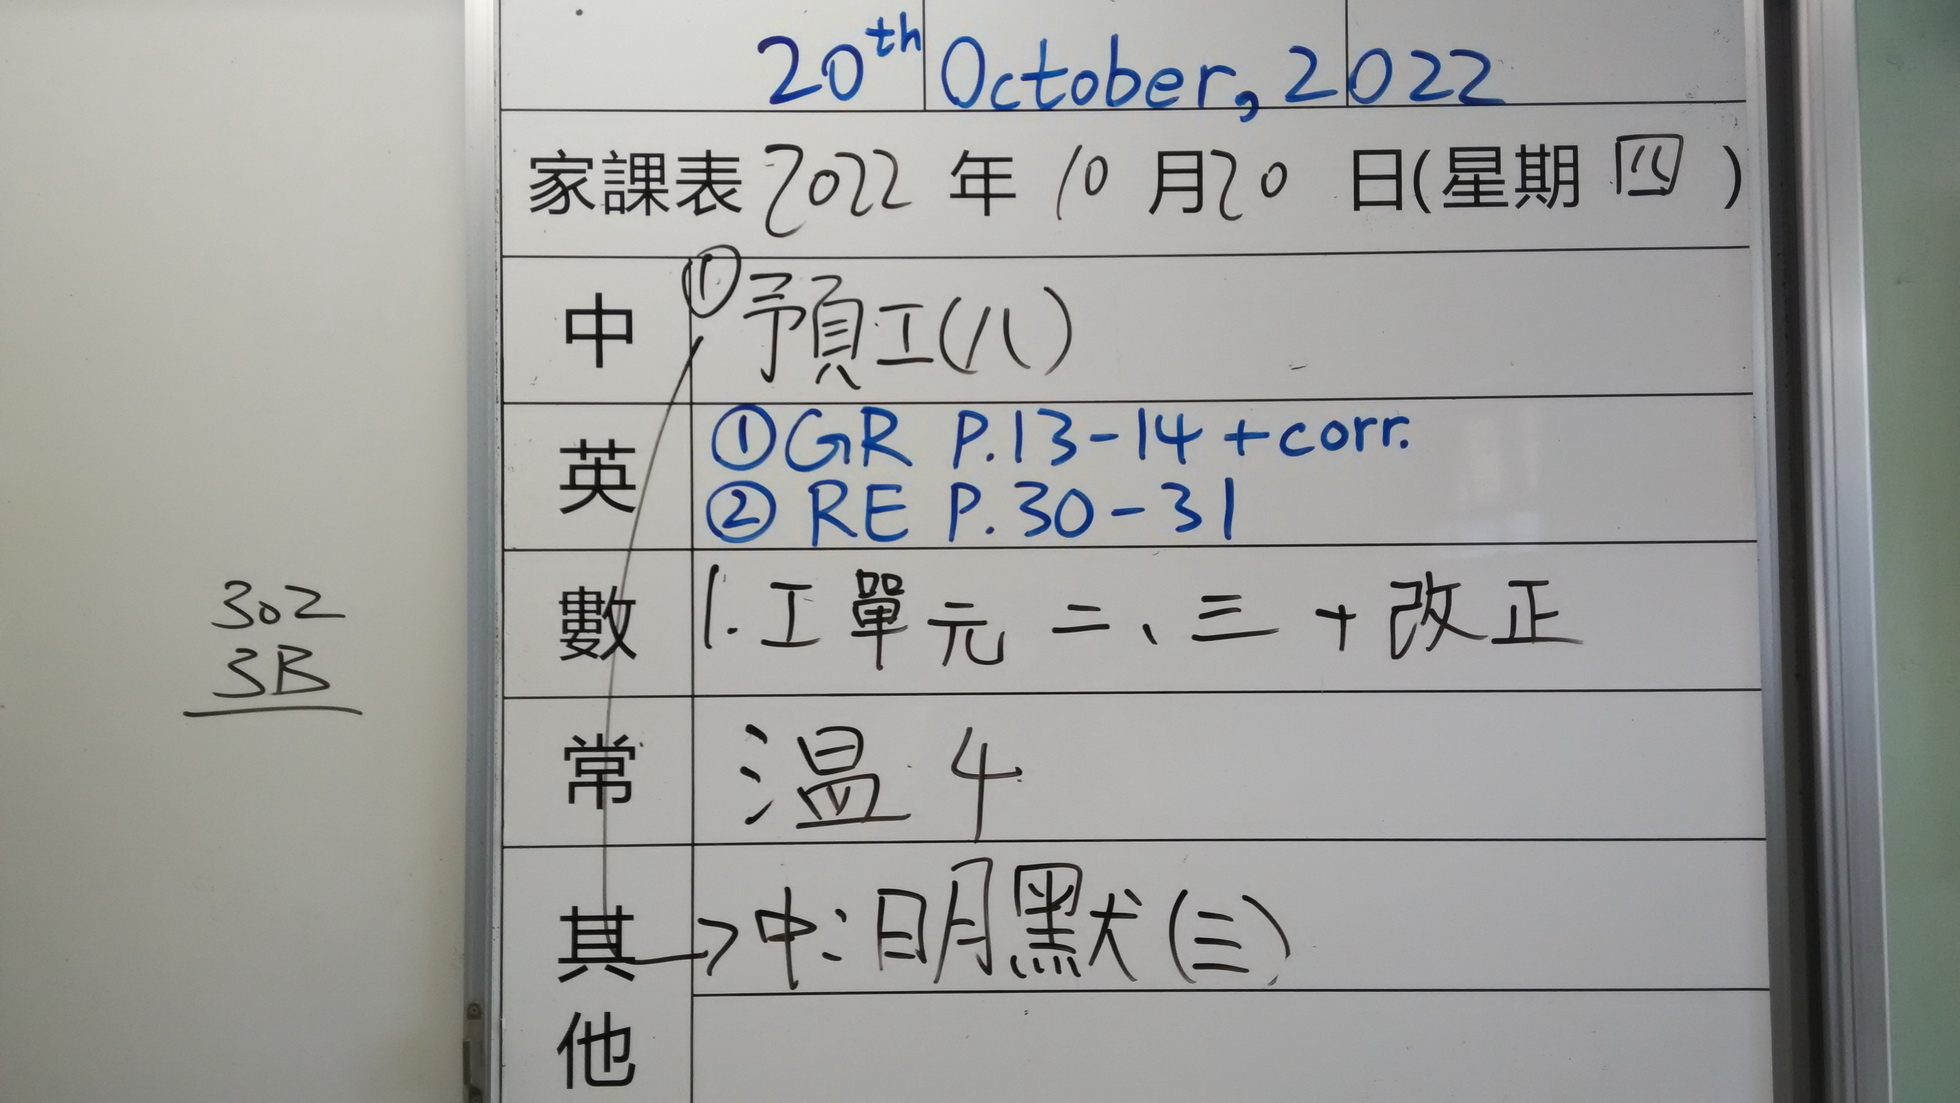 20th October, 2022
家課表 2022 年 10 月 20 日(星期 四 )
中 ① 預工(八)
英 ① GR P.13-14 + corr.
② RE P.30-31
數 1. 工單元 二、三 + 改正
常 溫 4
其他 → 中：明默(三)
302
3B